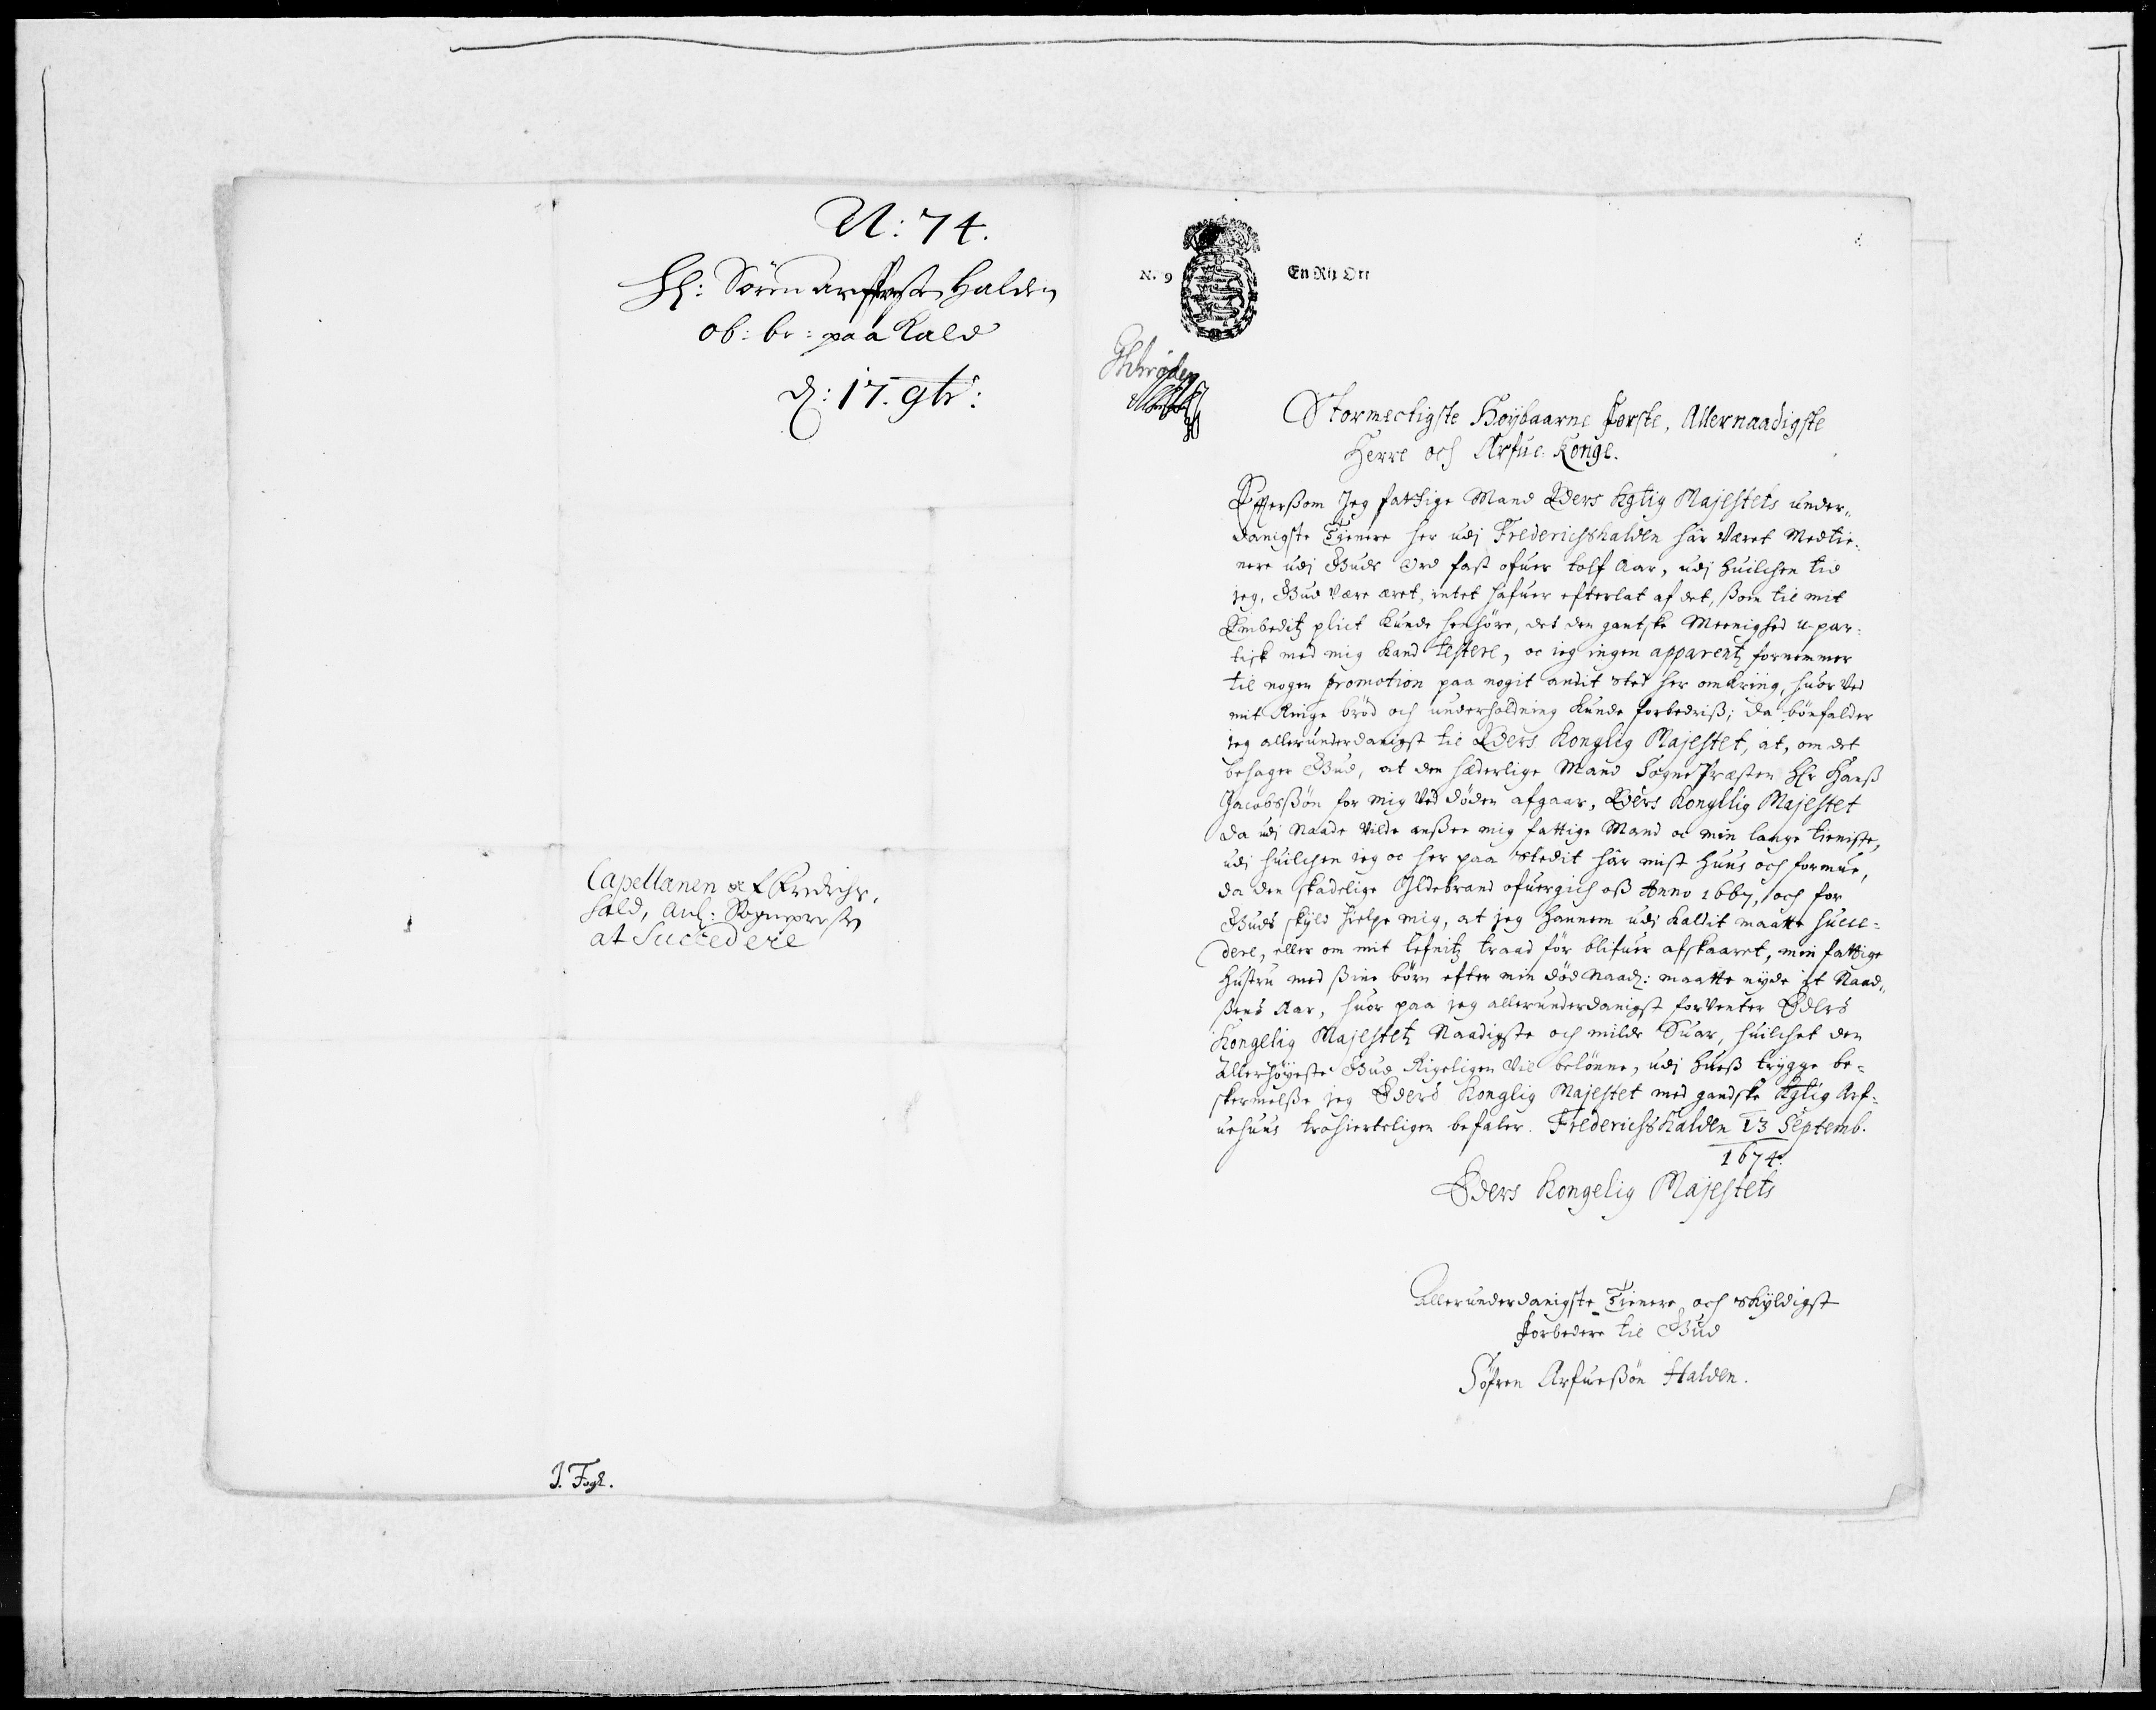 N: 74.
Hl: Sören Halden
ob: br: paa Kald
d: 17. 9br:
Capellanen
hald, anl: Sognepresten
at Succedere
J. Fogh.
N. 9
En Rix Ort
Stormectigste Høybaarne Forste, Allernaadigste
Herre och Arfue Konge.
Efftersom Jeg fattige Mand Eders Kgliig Majestets under„
danigste Tienere her udj Friderichshalden här været Medtie„
nere udj Guds Ord fast ofuer tolf Aar, udj huilchen tid
jeg, Gud være æret, intet hafuer efterlat af det, ßom til mit
Embeditz plict kunde henhöre, det den gantske Meenighed u-par„
tisk med mig kand testere, oc jeg ingen apparentz fornemmer
til nogen promotion paa nogit andit sted her omkring, huor ved
mit Ringe bröd och underholdning kunde forbedriß; da bönfalder
jeg allerunderdanigst til Eders Konglig Majestet, at, om det
behager Gud, at den hæderlige Mand SognePræsten Hr Hanß
Jacobsßön for mig ved döden afgaar, Eders Konglig Majestet
da udj Naade vilde anßee mig fattige Mand oc min lange tieniste,
udj huilchen jeg oc her paa stedit här mist Huus och formue,
da den skadelige Ildebrand ofuergich oß Anno 1667, och for
Guds skyld hielpe mig, at jeg hannem udj kaldit maatte succe„
dere, eller om mit lefnitz traad för blifuer afskaaret, min fattige
Hustru med ßine börn efter min död Naad: maatte nyde it Naad„
ßens Aar, huor paa jeg allerunderdanigst forventer Eders
Kongelig Majestetz Naadigste och milde Suar, huilchet den
Allerhøyeste Gud Rigeligen vil belönne, udj hueß trygge be„
skermelße jeg Eders Konglig Majestet med gandske Kglig Arf„
uehuus trohierteligen befaler. Friderichshalden 13 Septemb.
1674.
Eders Kongelig Majestets
Allerunderdanigste Tienere och skyldigst
Forbedere til Gud
Söfren Arfueßön Halden.